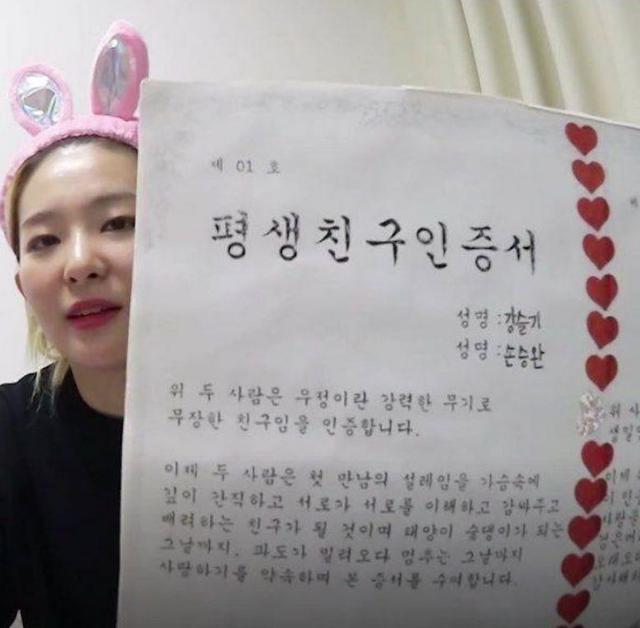 제 01 호
평생친구인증서
성명 : 강슬기
성명 : 손승완
위 두 사람은 우정이란 강력한 무기로
무장한 친구임을 인증합니다.
이제 두 사람은 첫 만남의 설레임을 가슴속에
깊이 간직하고 서로가 서로를 이해하고 감싸주고
배려하는 친구가 될 것이며 태양이 숯댕이가 되는
그날까지. 파도가 밀려오다 멈추는 그날까지
사랑하기를 약속하며 본 증서를 수여합니다.
위 사
생일